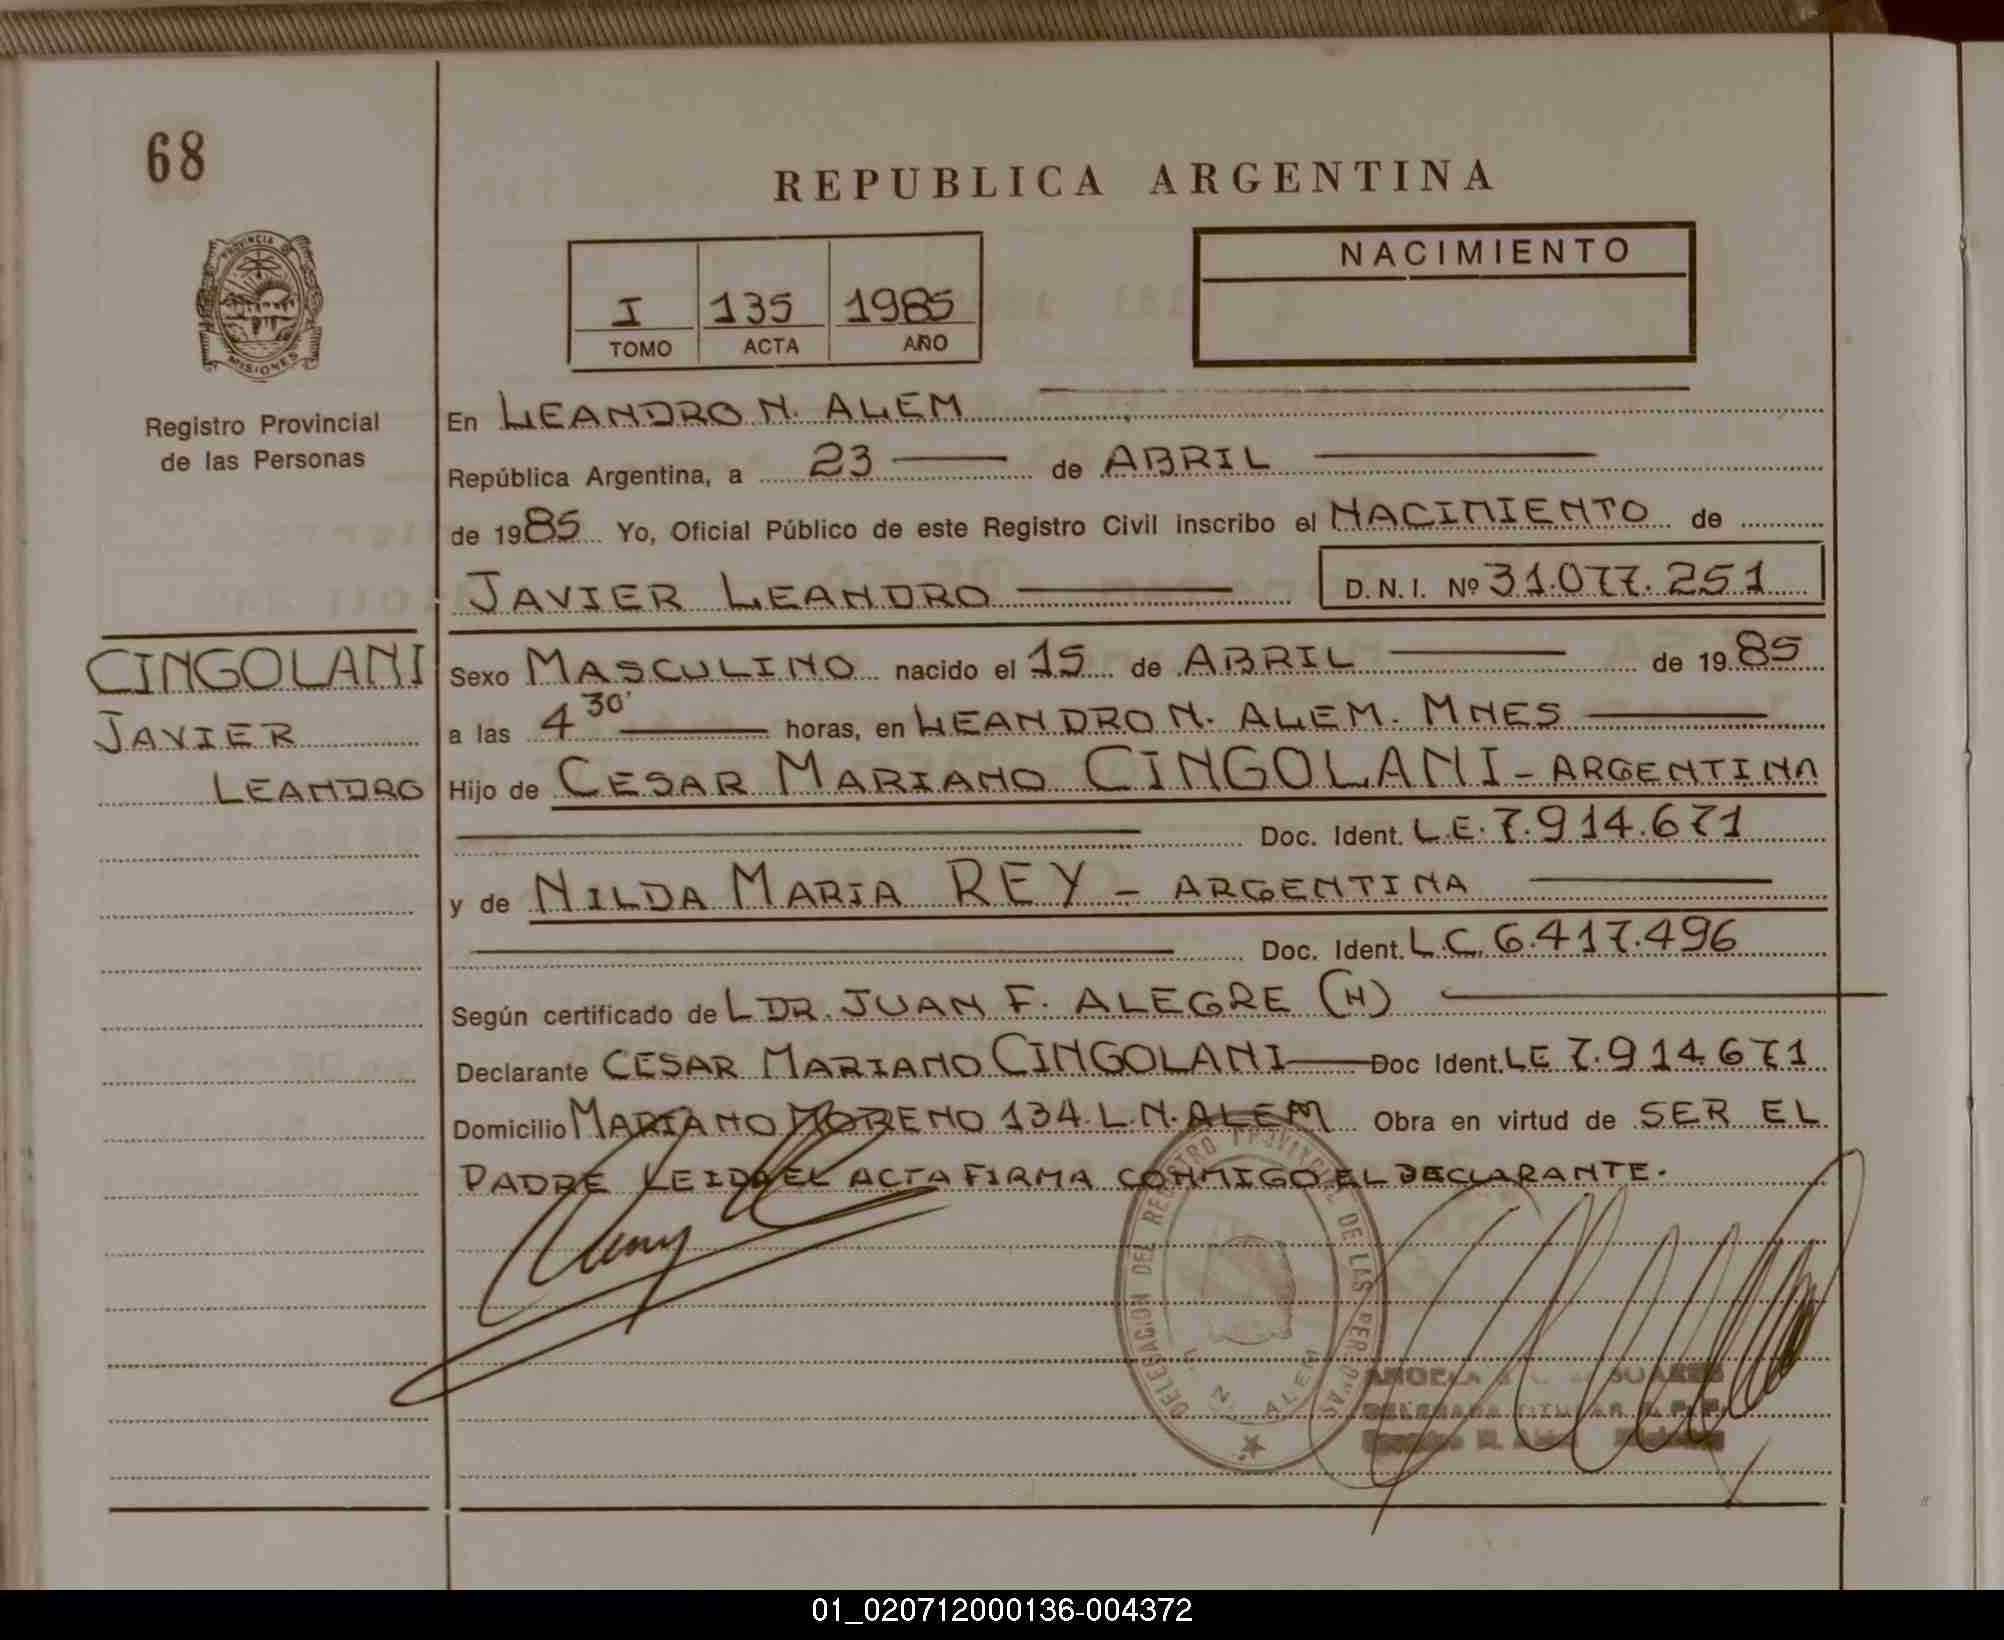 68
REPUBLICA ARGENTINA
PROVINCIA DE
MISIONES
Registro Provincial
de las Personas
I 135 1985
TOMO ACTA AÑO
NACIMIENTO
En LEANDRO N. ALEM
República Argentina, a 23 de ABRIL
de 1985 Yo, Oficial Público de este Registro Civil inscribo el NACIMIENTO de
JAVIER LEANDRO D.N.I. Nº 31.077.251
CINGOLANI
JAVIER
LEANDRO
Sexo MASCULINO nacido el 15 de ABRIL de 1985
a las 4 30' horas, en LEANDRO N. ALEM. MNES
Hijo de CESAR MARIANO CINGOLANI - ARGENTINA
Doc. Ident. L.E. 7.914.671
y de NILDA MARIA REY - ARGENTINA
Doc. Ident. L.C. 6.417.496
Según certificado de L DR. JUAN F. ALEGRE (H)
Declarante CESAR MARIANO CINGOLANI Doc Ident. LE 7.914.671
Domicilio MARIANO MORENO 134. L.N. ALEM Obra en virtud de SER EL
PADRE LEIDA EL ACTA FIRMA CONMIGO EL DECLARANTE.
DELEGACION DEL REGISTRO PROVINCIAL DE LAS PERSONAS
L. N. ALEM
ANGELA SOARES
DELEGADA TITULAR R. P. P.
01_020712000136-004372